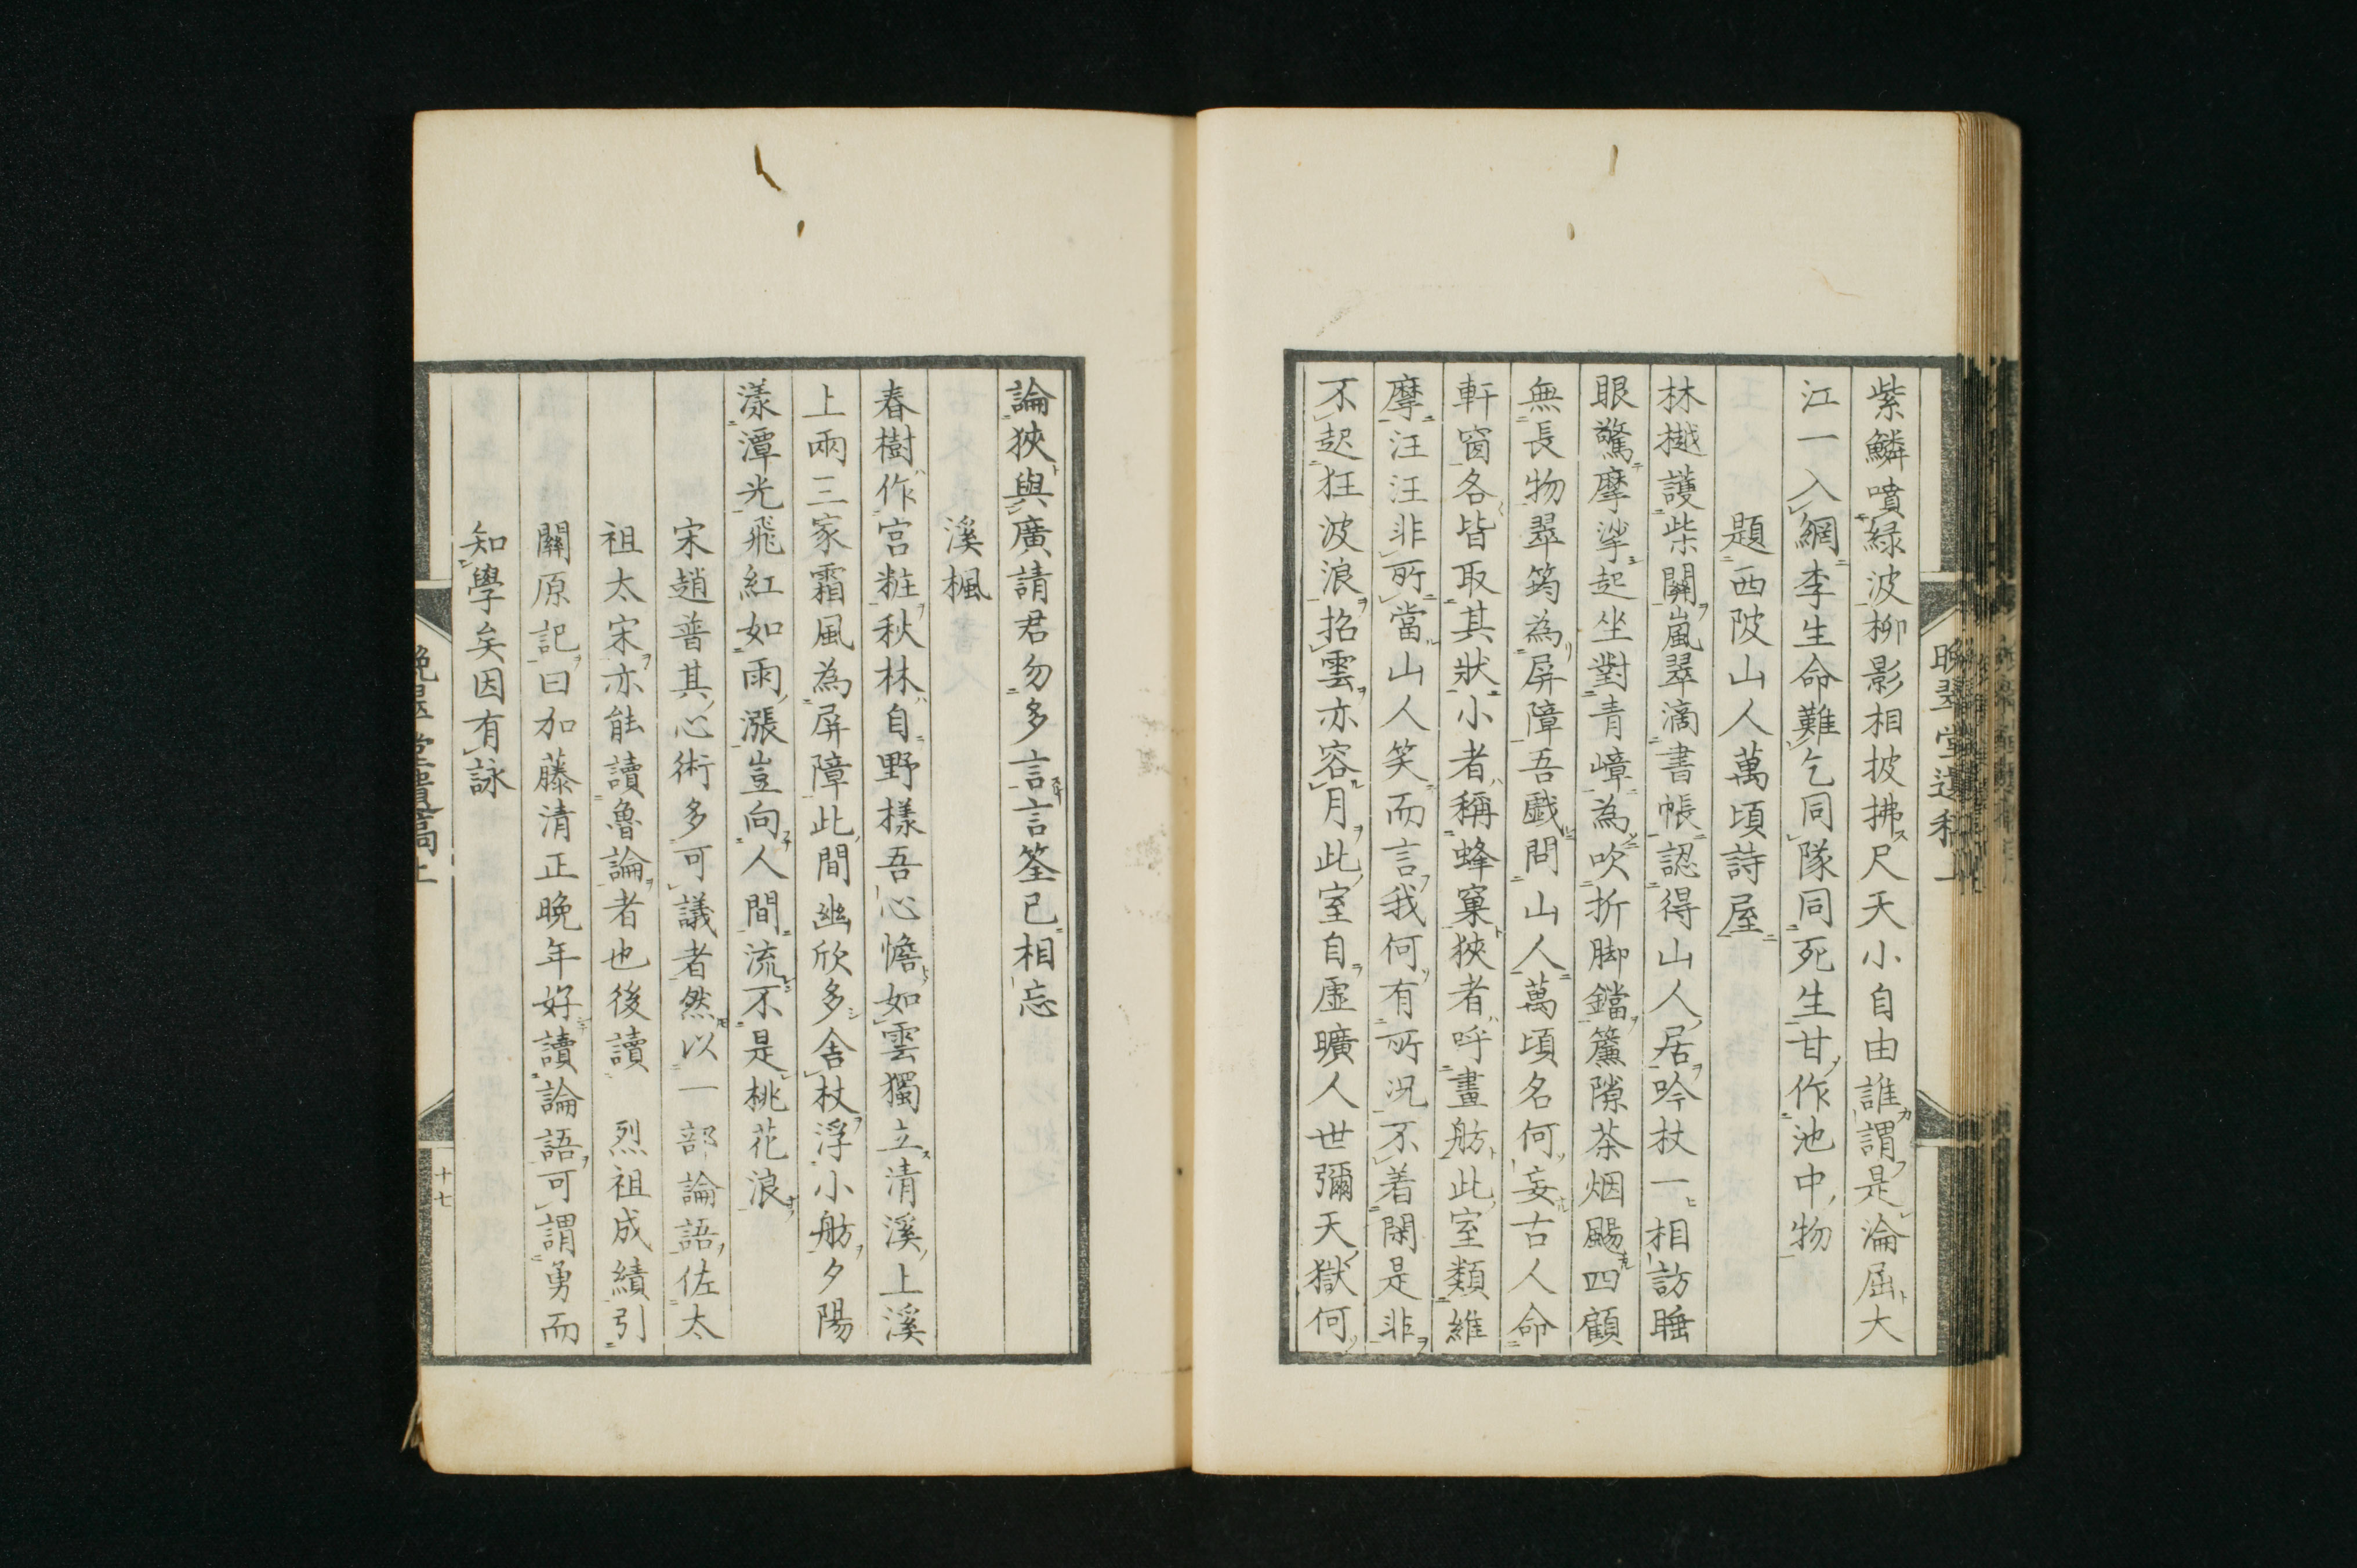 紫鱗噴綠波柳影相披拂尺天小自由誰謂是淪屈大
江一入網李生命難乞同隊同死生甘作池中物
題西陂山人萬頃詩屋
林樾護柴關嵐翠滴書帳認得山人居吟杖一相訪睡
眼驚摩挲起坐對青嶂為吹折脚鐺簾隙茶烟颺四顧
無長物翠筠為屏障吾戲問山人萬頃名何妄古人命
軒窗各皆取其狀小者稱蜂窠狹者呼畫舫此室類維
摩汪汪非所當山人笑而言我何有所况不着閑是非
不起狂波浪招雲亦容月此室自虛曠人世彌天獄何
論狹與廣請君勿多言言筌已相忘
溪楓
春樹作宮粧秋林自野樣吾心憺如雲獨立清溪上溪
上兩三家霜風為屏障此間幽欣多舍杖浮小舫夕陽
漾潭光飛紅如雨漲豈向人間流不是桃花浪
宋趙普其心術多可議者然以一部論語佐太
祖太宋亦能讀魯論者也後讀 烈祖成績引
關原記曰加藤清正晚年好讀論語可謂勇而
知學矣因有詠
晚翠堂遺稿上
十七